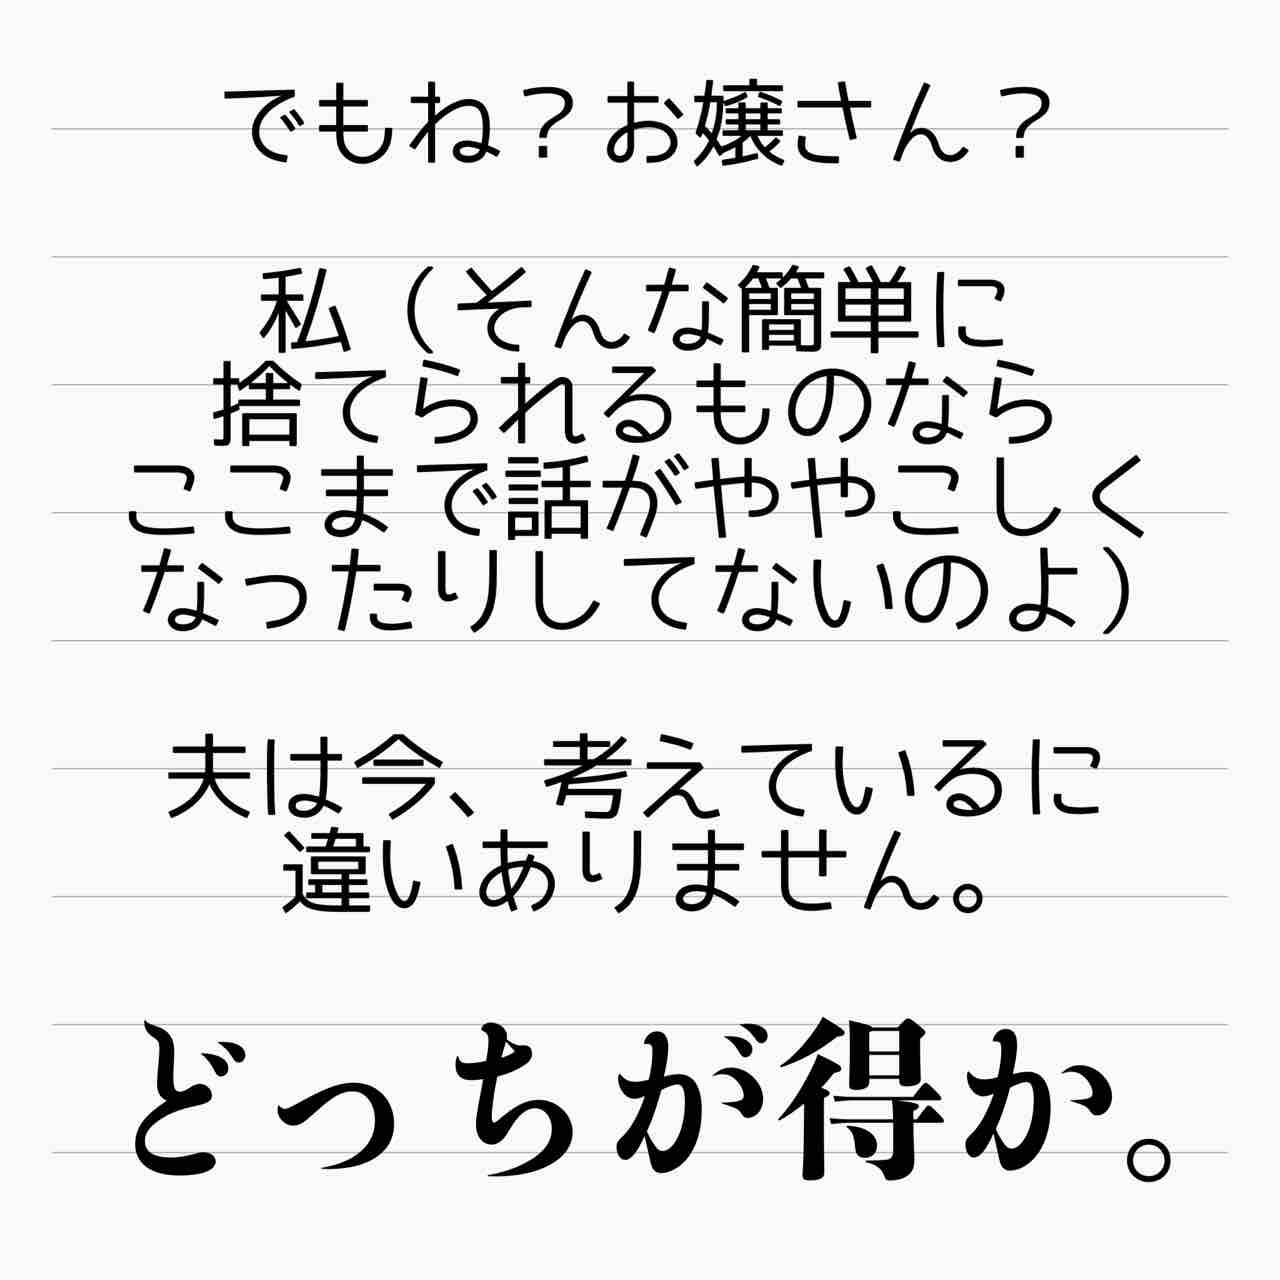 でもね？お嬢さん？
私（そんな簡単に
捨てられるものなら
ここまで話がややこしく
なったりしてないのよ）
夫は今、考えているに
違いありません。
どっちが得か。